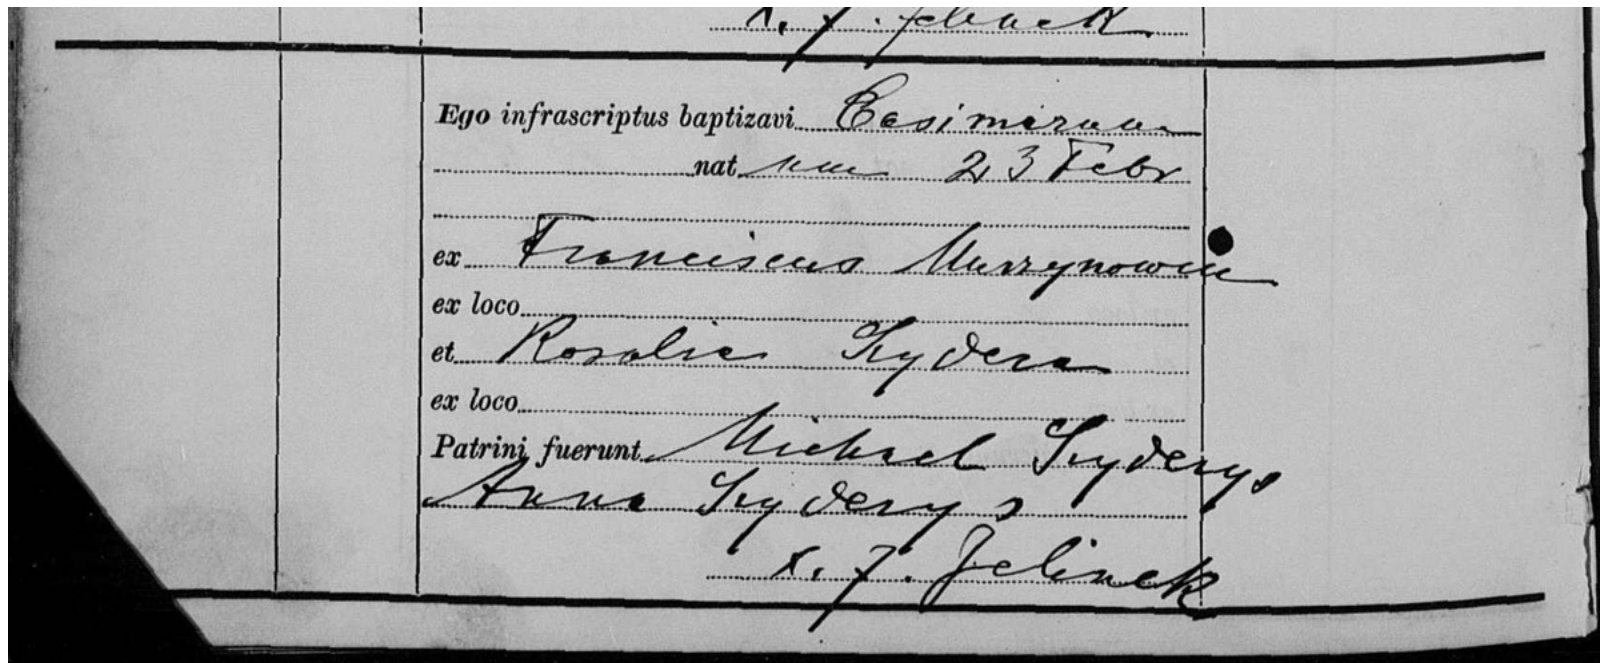 x. J. Jelinek
Ego infrascriptus baptizavi Casimirum
nat um 23 Febr
ex Franciscus Murzynowski
ex loco
et Rosalie Szydera
ex loco
Patrini fuerunt Michael Szyderys
Anna Szyderys
x. J. Jelinek